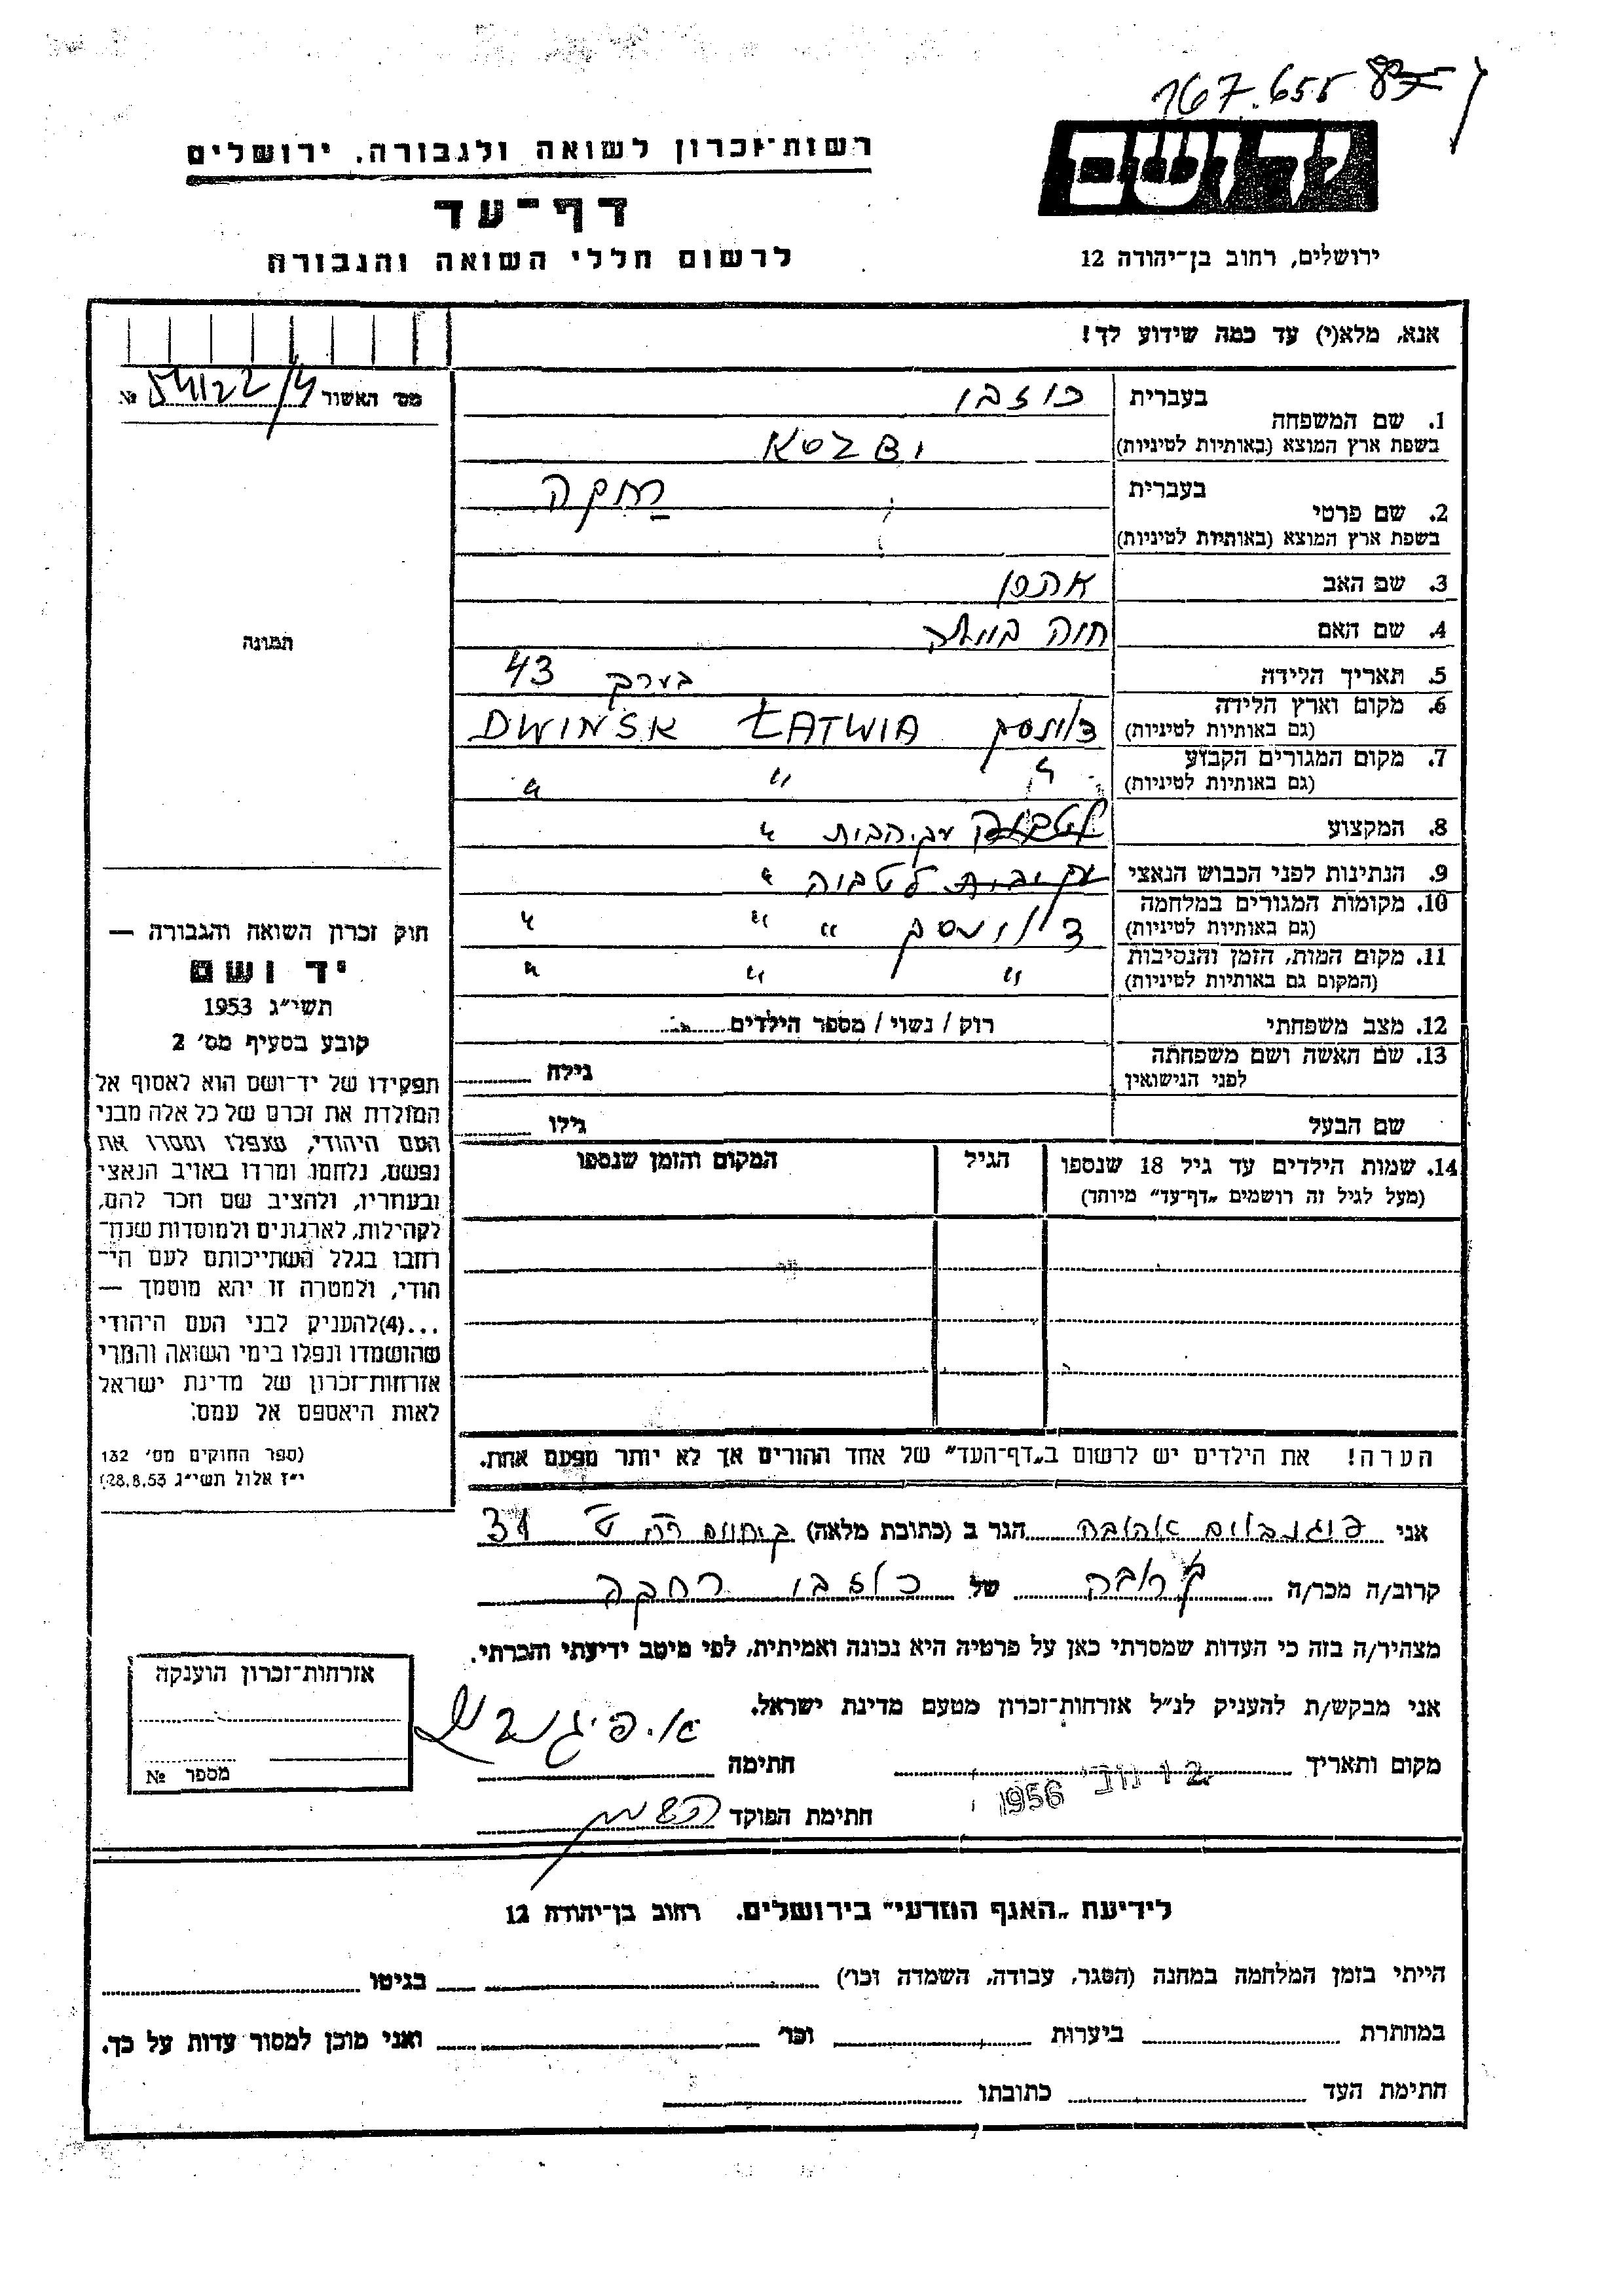 167.655
רשות־זכרון לשואה ולגבורה, ירושלים
יד ושם
דף־עד
לרשום חללי השואה והגבורה
ירושלים, רחוב בן־יהודה 12
אנא, מלא(י) עד כמה שידוע לך!
מס׳ האשור № 54122/4
1. שם המשפחה
בעברית
בשפת ארץ המוצא (באותיות לטיניות)
2. שם פרטי
בעברית
רבקה
בשפת ארץ המוצא (באותיות לטיניות)
3. שם האב
4. שם האם חוה
תמונה
5. תאריך הלידה בערך 43
6. מקום וארץ הלידה
(גם באותיות לטיניות)
דוינסק ŁATWIA DWINSK
7. מקום המגורים הקבוע
(גם באותיות לטיניות)
" " "
8. המקצוע עקרת בית "
9. הנתינות לפני הכבוש הנאצי לטביה "
10. מקומות המגורים במלחמה
(גם באותיות לטיניות)
דוינסק " " "
11. מקום המות, הזמן והנסיבות
(המקום גם באותיות לטיניות)
" " "
12. מצב משפחתי רוק / נשוי / מספר הילדים
13. שם האשה ושם משפחתה
לפני הנישואין
גילה
שם הבעל
גילו
14. שמות הילדים עד גיל 18 שנספו
(מעל לגיל זה רושמים „דף־עד״ מיוחד)
הגיל
המקום והזמן שנספו
הערה! את הילדים יש לרשום ב„דף־העד״ של אחד ההורים אך לא יותר מפעם אחת.
חוק זכרון השואה והגבורה —
יד ושם
תשי״ג 1953
קובע בסעיף מס׳ 2
תפקידו של יד־ושם הוא לאסוף אל
המולדת את זכרם של כל אלה מבני
העם היהודי, שנפלו ומסרו את
נפשם, נלחמו ומרדו באויב הנאצי
ובעוזריו, ולהציב שם וזכר להם,
לקהילות, לארגונים ולמוסדות שנח־
רבו בגלל השתייכותם לעם הי־
הודי, ולמטרה זו יהא מוסמך —
...(4)להעניק לבני העם היהודי
שהושמדו ונפלו בימי השואה והמרי
אזרחות־זכרון של מדינת ישראל
לאות היאספם אל עמם.
(ספר החוקים מס׳ 132
י״ז אלול תשי״ג 28.8.53)
אני פיגנבוים אהובה הגר ב (כתובת מלאה) 31
קרוב/ה מכר/ה קרובה של רבקה
מצהיר/ה בזה כי העדות שמסרתי כאן על פרטיה היא נכונה ואמיתית, לפי מיטב ידיעתי והכרתי.
אני מבקש/ת להעניק לנ״ל אזרחות־זכרון מטעם מדינת ישראל.
מקום ותאריך 12 נוב׳ 1956 חתימה
חתימת הפוקד
אזרחות־זכרון הוענקה
מספר №
לידיעת „האגף המדעי״ בירושלים. רחוב בן־יהודה 12
הייתי בזמן המלחמה במחנה (הסגר, עבודה, השמדה וכו׳) בגיטו
במחתרת ביערות וכו׳ ואני מוכן למסור עדות על כך.
חתימת העד כתובתו